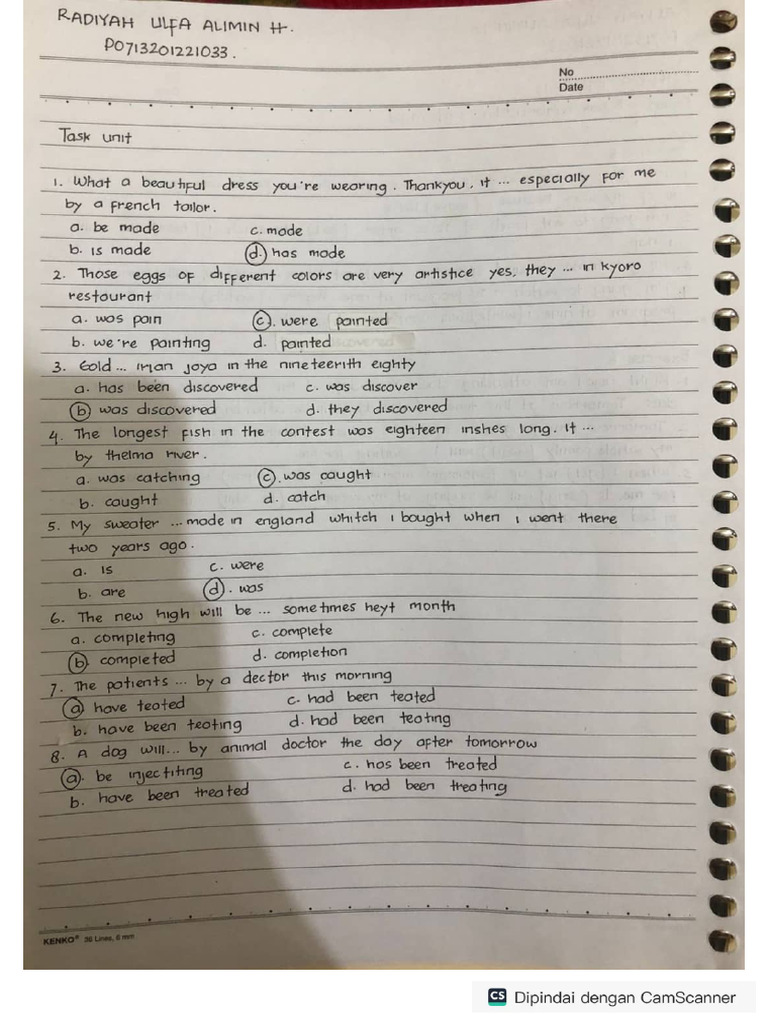 RADIYAH ULFA ALIMIN H.
P0713201221033.
No
Date
Task unit
1. What a beautiful dress you're wearing. Thankyou, it ... especially for me
by a french tailor.
a. be made c. made
b. is made d. has made
2. Those eggs of different colors are very artistice yes, they ... in kyoro
restourant
a. was pain c. were painted
b. we're painting d. painted
3. Gold ... irian joya in the nineteerith eighty
a. has been discovered c. was discover
b. was discovered d. they discovered
4. The longest fish in the contest was eighteen inshes long. It ...
by thelma river.
a. was catching c. was caught
b. caught d. catch
5. My sweater ... made in england whitch I bought when I went there
two years ago.
a. is c. were
b. are d. was
6. The new high will be ... sometimes heyt month
a. completing c. complete
b. completed d. completion
7. The patients ... by a dector this morning
a. have teated c. had been teated
b. have been teating d. had been teating
8. A dog will... by animal doctor the day after tomorrow
a. be injectiting c. has been treated
b. have been treated d. had been treating
KENKO® 36 Lines, 6 mm
CS Dipindai dengan CamScanner